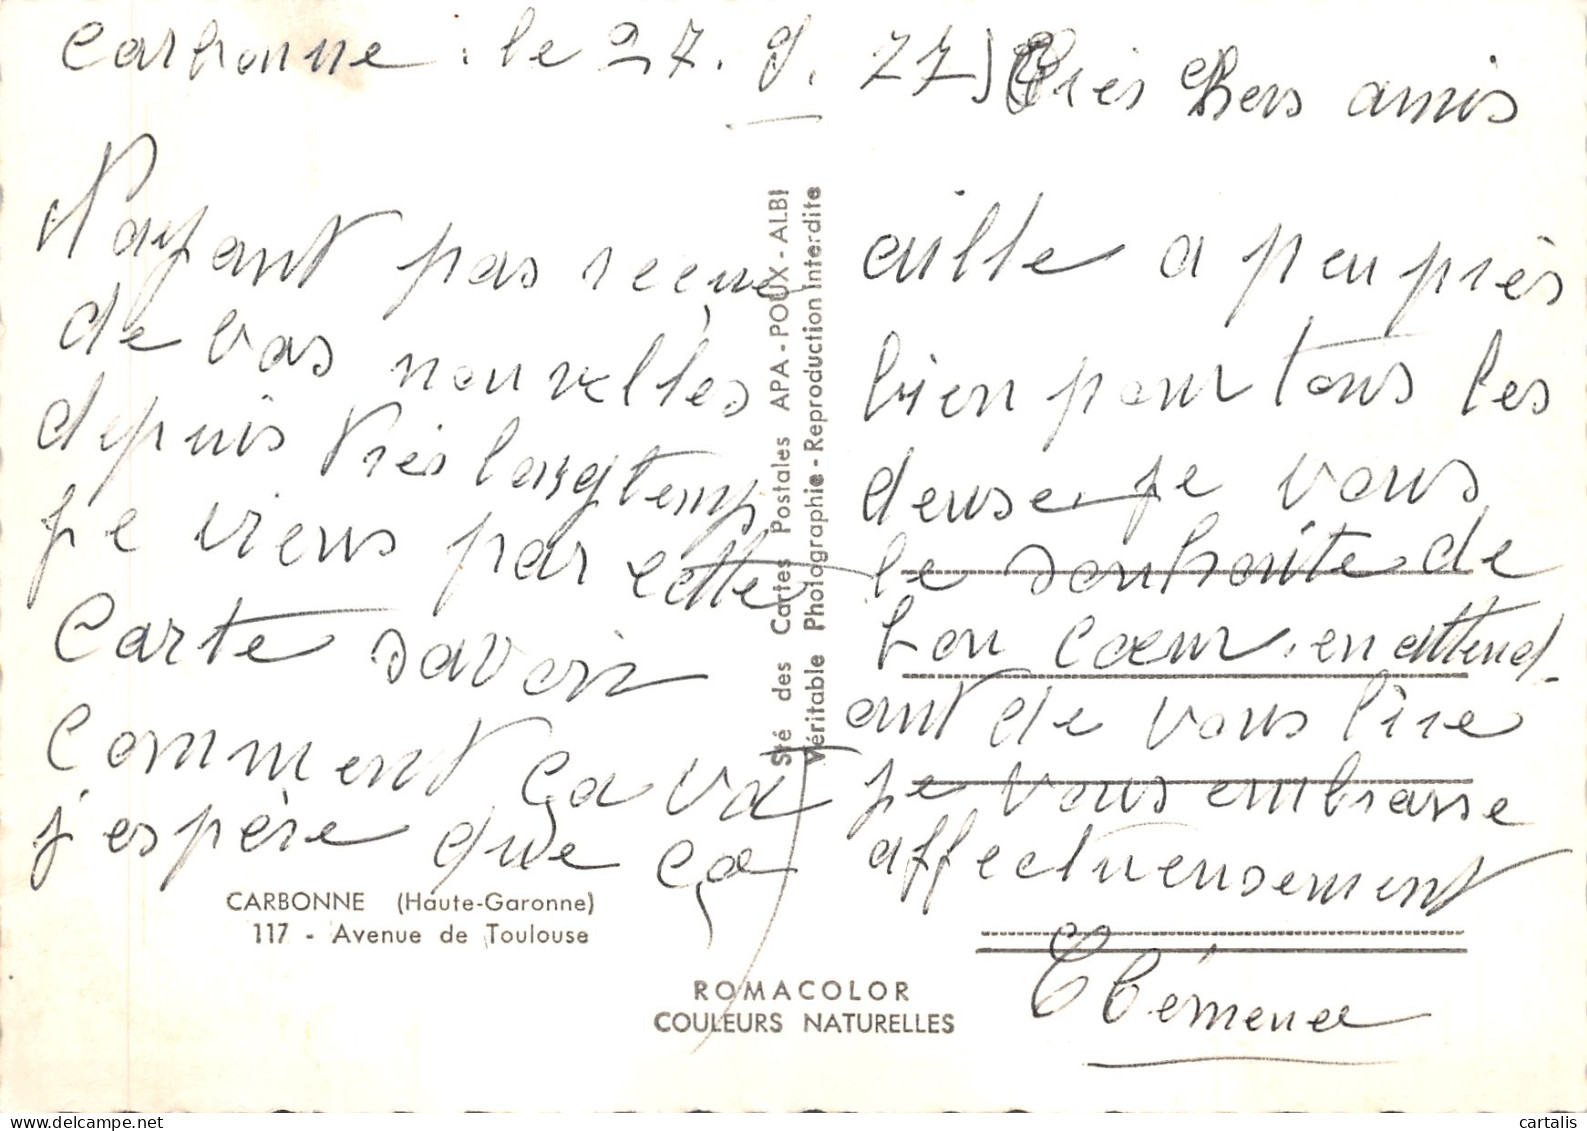 Carbonne. le 27. 9. 77 Très Chers amis
N'ayant pas reçue
de vos nouvelles
depuis très longtemps
je viens par cette
Carte savoir
Comment ça va
j'espère que ça
aille a peu près
bien pour tous les
deuse. je vous
le souhaite de
bon cœur. en attend-
ant de vous lire
je vous embrasse
affectueusement
CARBONNE (Haute-Garonne)
117 - Avenue de Toulouse
Sté des Cartes Postales APA - POUX - ALBI
Véritable Photographie - Reproduction Interdite
ROMACOLOR
COULEURS NATURELLES
cartalis
delcampe.net